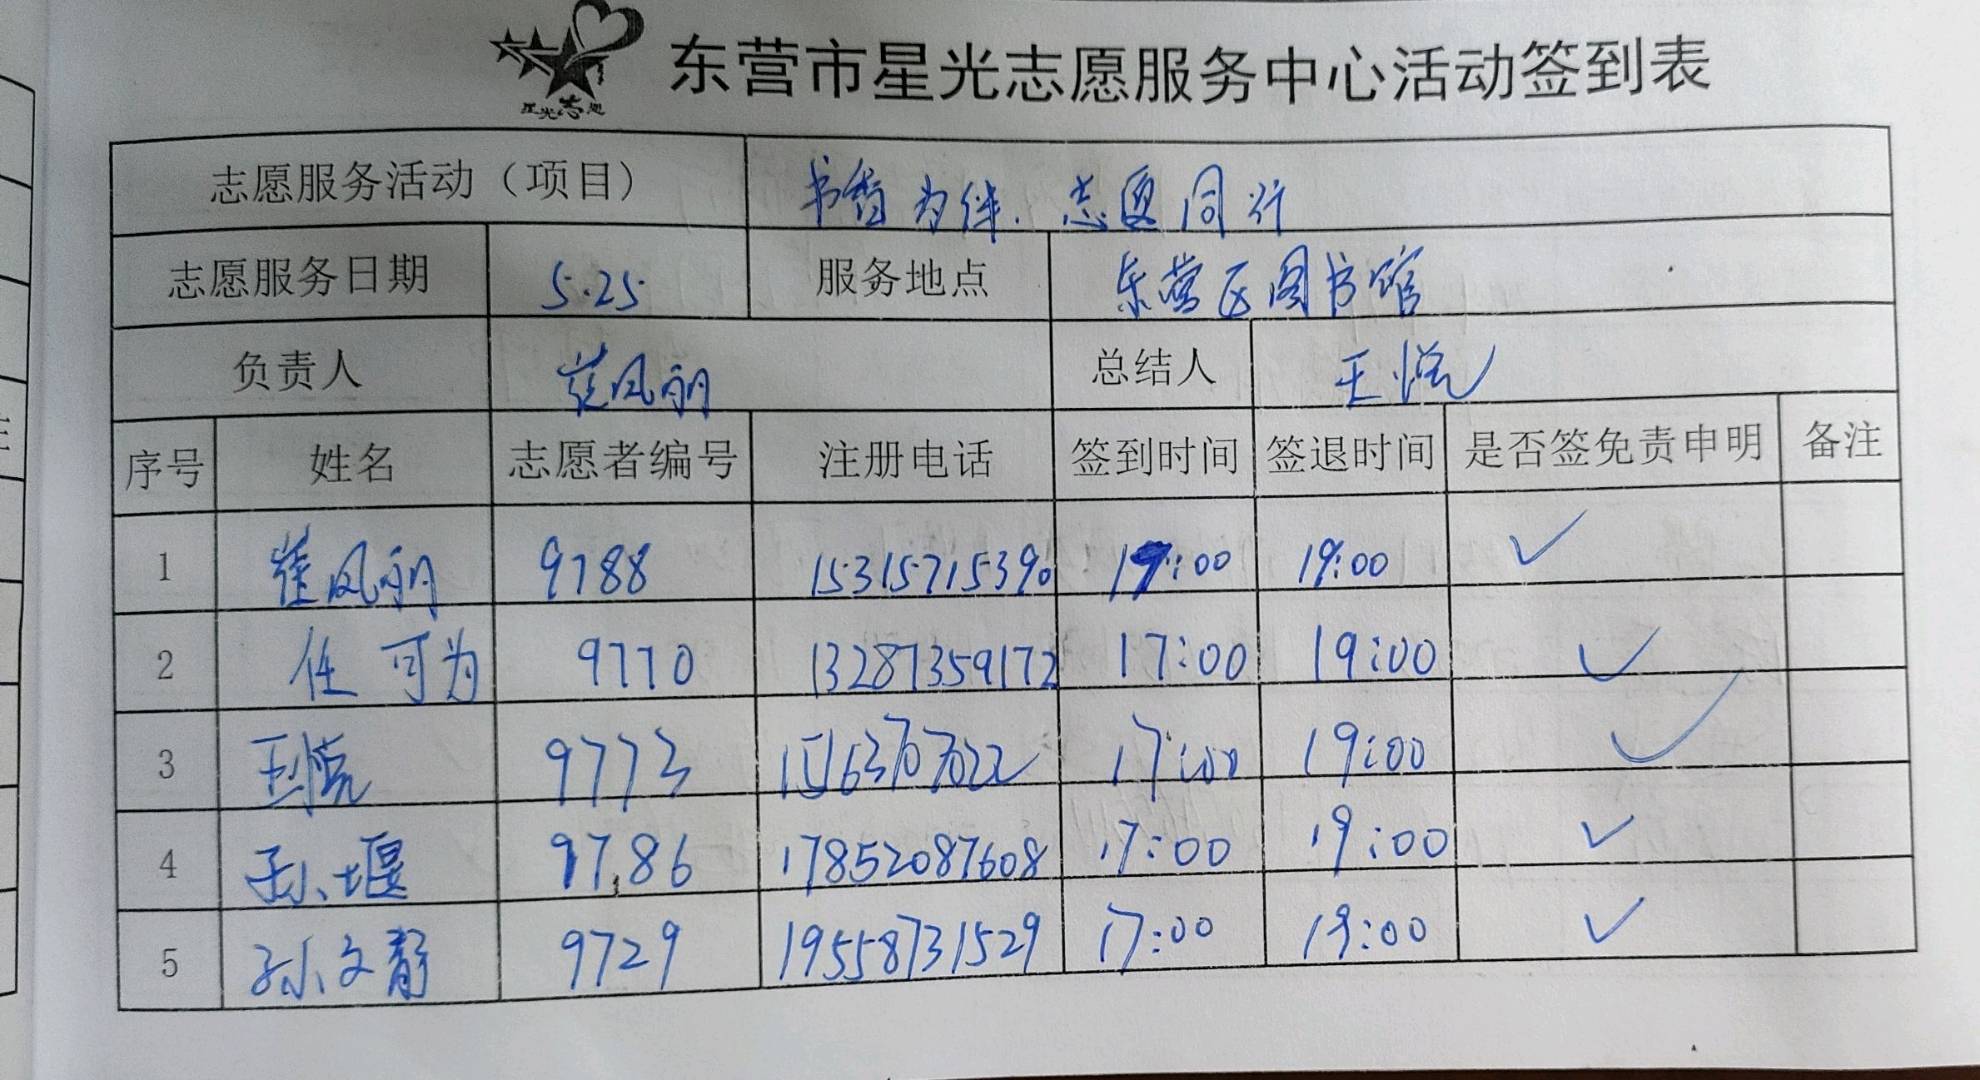 星光志愿
东营市星光志愿服务中心活动签到表
志愿服务活动（项目） 书香为伴.志愿同行
志愿服务日期 5.25 服务地点 东营区图书馆
负责人 崔凤丽 总结人 王悦
序号 姓名 志愿者编号 注册电话 签到时间 签退时间 是否签免责申明 备注
1 崔凤丽 9788 15315715390 17:00 19:00 ✓
2 任可为 9770 13287359172 17:00 19:00 ✓
3 王悦 9773 17:00 19:00 ✓
4 孙堰 9786 17852087608 17:00 19:00 ✓
5 孙文静 9729 19558731529 17:00 19:00 ✓